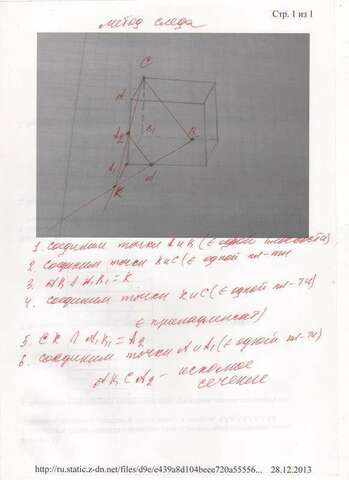 Стр. 1 из 1
метод следа
C
A
A₂
B₁
B
A₁
A
K
1. Соединим точки A и B (∈ одной плоскости)
2. Соединим точки K и C (∈ одной пл-ти
3. AB ∩ A₁B₁ = K
4. Соединим точки K и C (∈ одной пл-ти)
∈ принадлежат)
5. CK ∩ A₁ = A₂
6. Соединим точки A и A₂ (∈ одной пл-ти)
C A₂ - искомое
сечение
http://ru.static.z-dn.net/files/d9e/e439a8d104beee720a55556... 28.12.2013